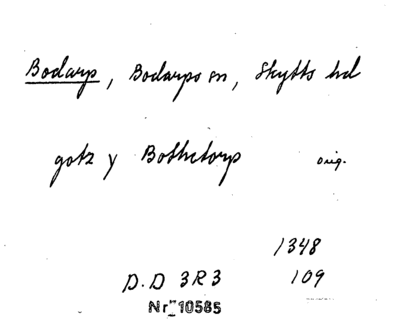 Bodarp, Bodarps sn, Skytts hd
gotz y Bothetorp orig.
1348
D.D 3R3 109
Nr 10585